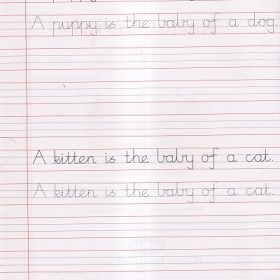 A puppy is the baby of a dog
A kitten is the baby of a cat.
A kitten is the baby of a cat.